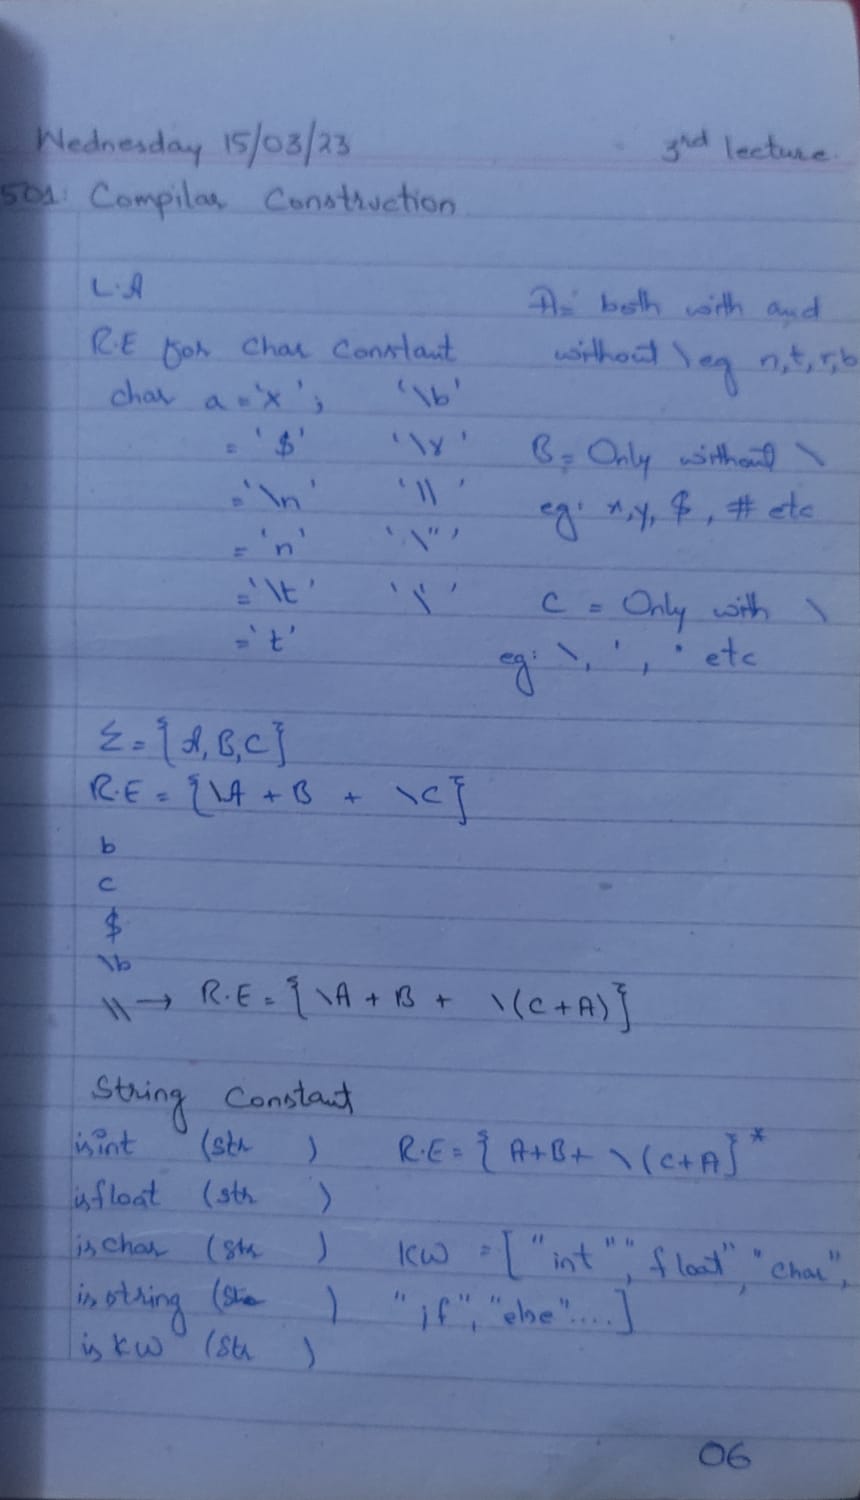 Wednesday 15/03/23 3rd lecture.
501: Compilar Construction
L.A
R.E for Char Constant
char a = 'x'; '\b'
= '$' '\r'
= '\n' '\\'
= 'n' '\"'
= '\t' '\''
= 't'
A= both with and
without \ eg n,t,r,b
B= Only without \
eg: x,y, $, # etc
C = Only with \
eg: \, ', " etc
Σ = {A,B,C}
R.E = {\A + B + \C}
b
c
$
\b
\\ → R.E = {\A + B + \(C+A)}
String Constant
isint (str ) R.E = { A+B+ \(C+A}*
isfloat (str )
is char (str ) KW = ["int"", float", "char",
is string (Str ) "if", "else"....]
is KW (Str )
06